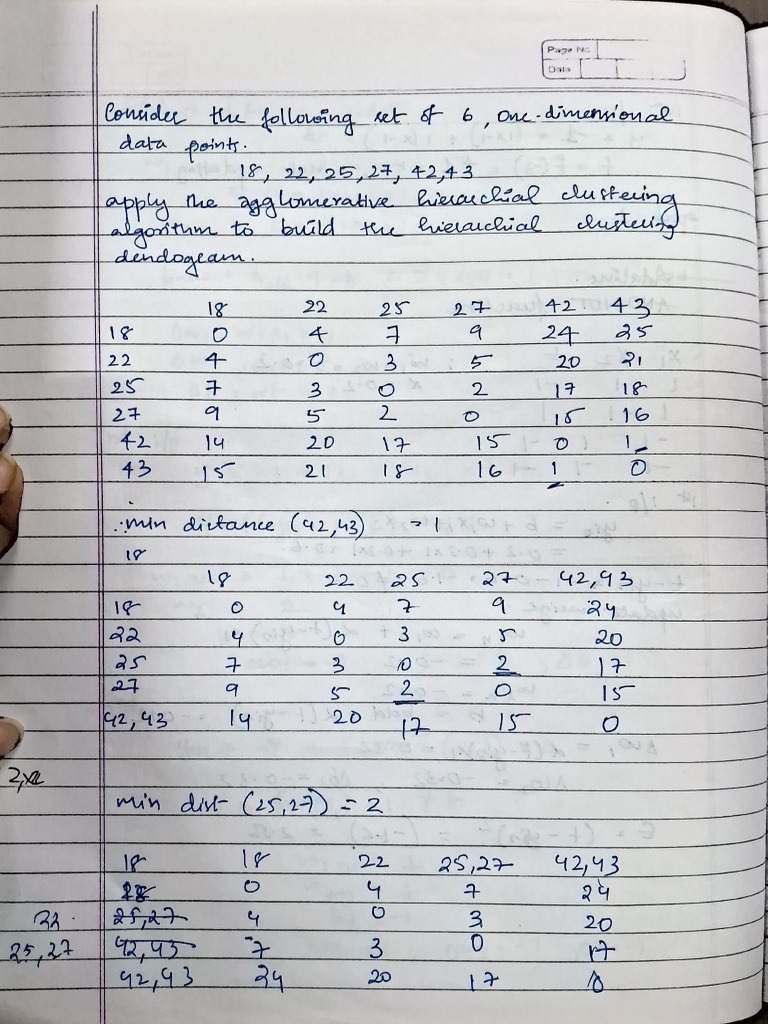 Page No.
Date
Consider the following set of 6, one-dimensional
data points.
18, 22, 25, 27, 42, 43
apply the agglomerative hierachial clustering
algorithm to build the hierachial clustering
dendogram.
18 22 25 27 42 43
18 0 4 7 9 24 25
22 4 0 3 5 20 21
25 7 3 0 2 17 18
27 9 5 2 0 15 16
42 14 20 17 15 0 1
43 15 21 18 16 1 0
∴ min distance (42,43) = 1
18
18 22 25 27 42,43
18 0 4 7 9 24
22 4 0 3 5 20
25 7 3 0 2 17
27 9 5 2 0 15
42,43 14 20 17 15 0
min dist (25,27) = 2
18 18 22 25,27 42,43
18 0 4 7 24
22. 25,27 4 0 3 20
25,27 42,43 7 3 0 17
42,43 24 20 17 0